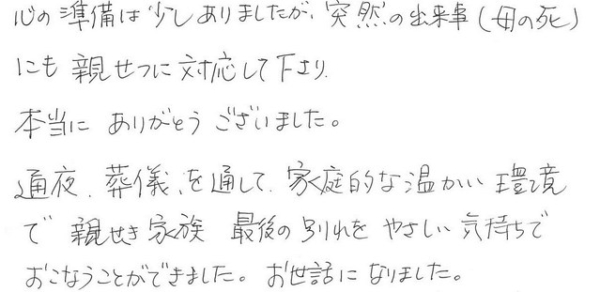 心の準備は少しありましたが、突然の出来事(母の死)
にも親せつに対応して下さり、
本当に ありがとう ございました。
通夜、葬儀、を通して、家庭的な温かい環境
で 親せき家族 最後の別れを やさしい気持ちで
おこなうことができました。お世話になりました。